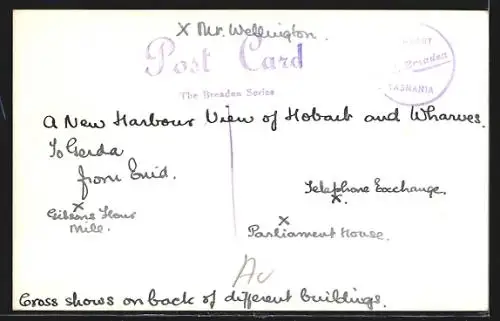 x Mt. Wellington.
Post Card
The Breaden Series
Breaden
TASMANIA
A New Harbour View of Hobart and Wharves.
To Gerda
from Enid.
Telephone Exchange.
x
x
Gibsons Flour
Mill.
x
Parliament House.
Au
Cross shows on back of different buildings.